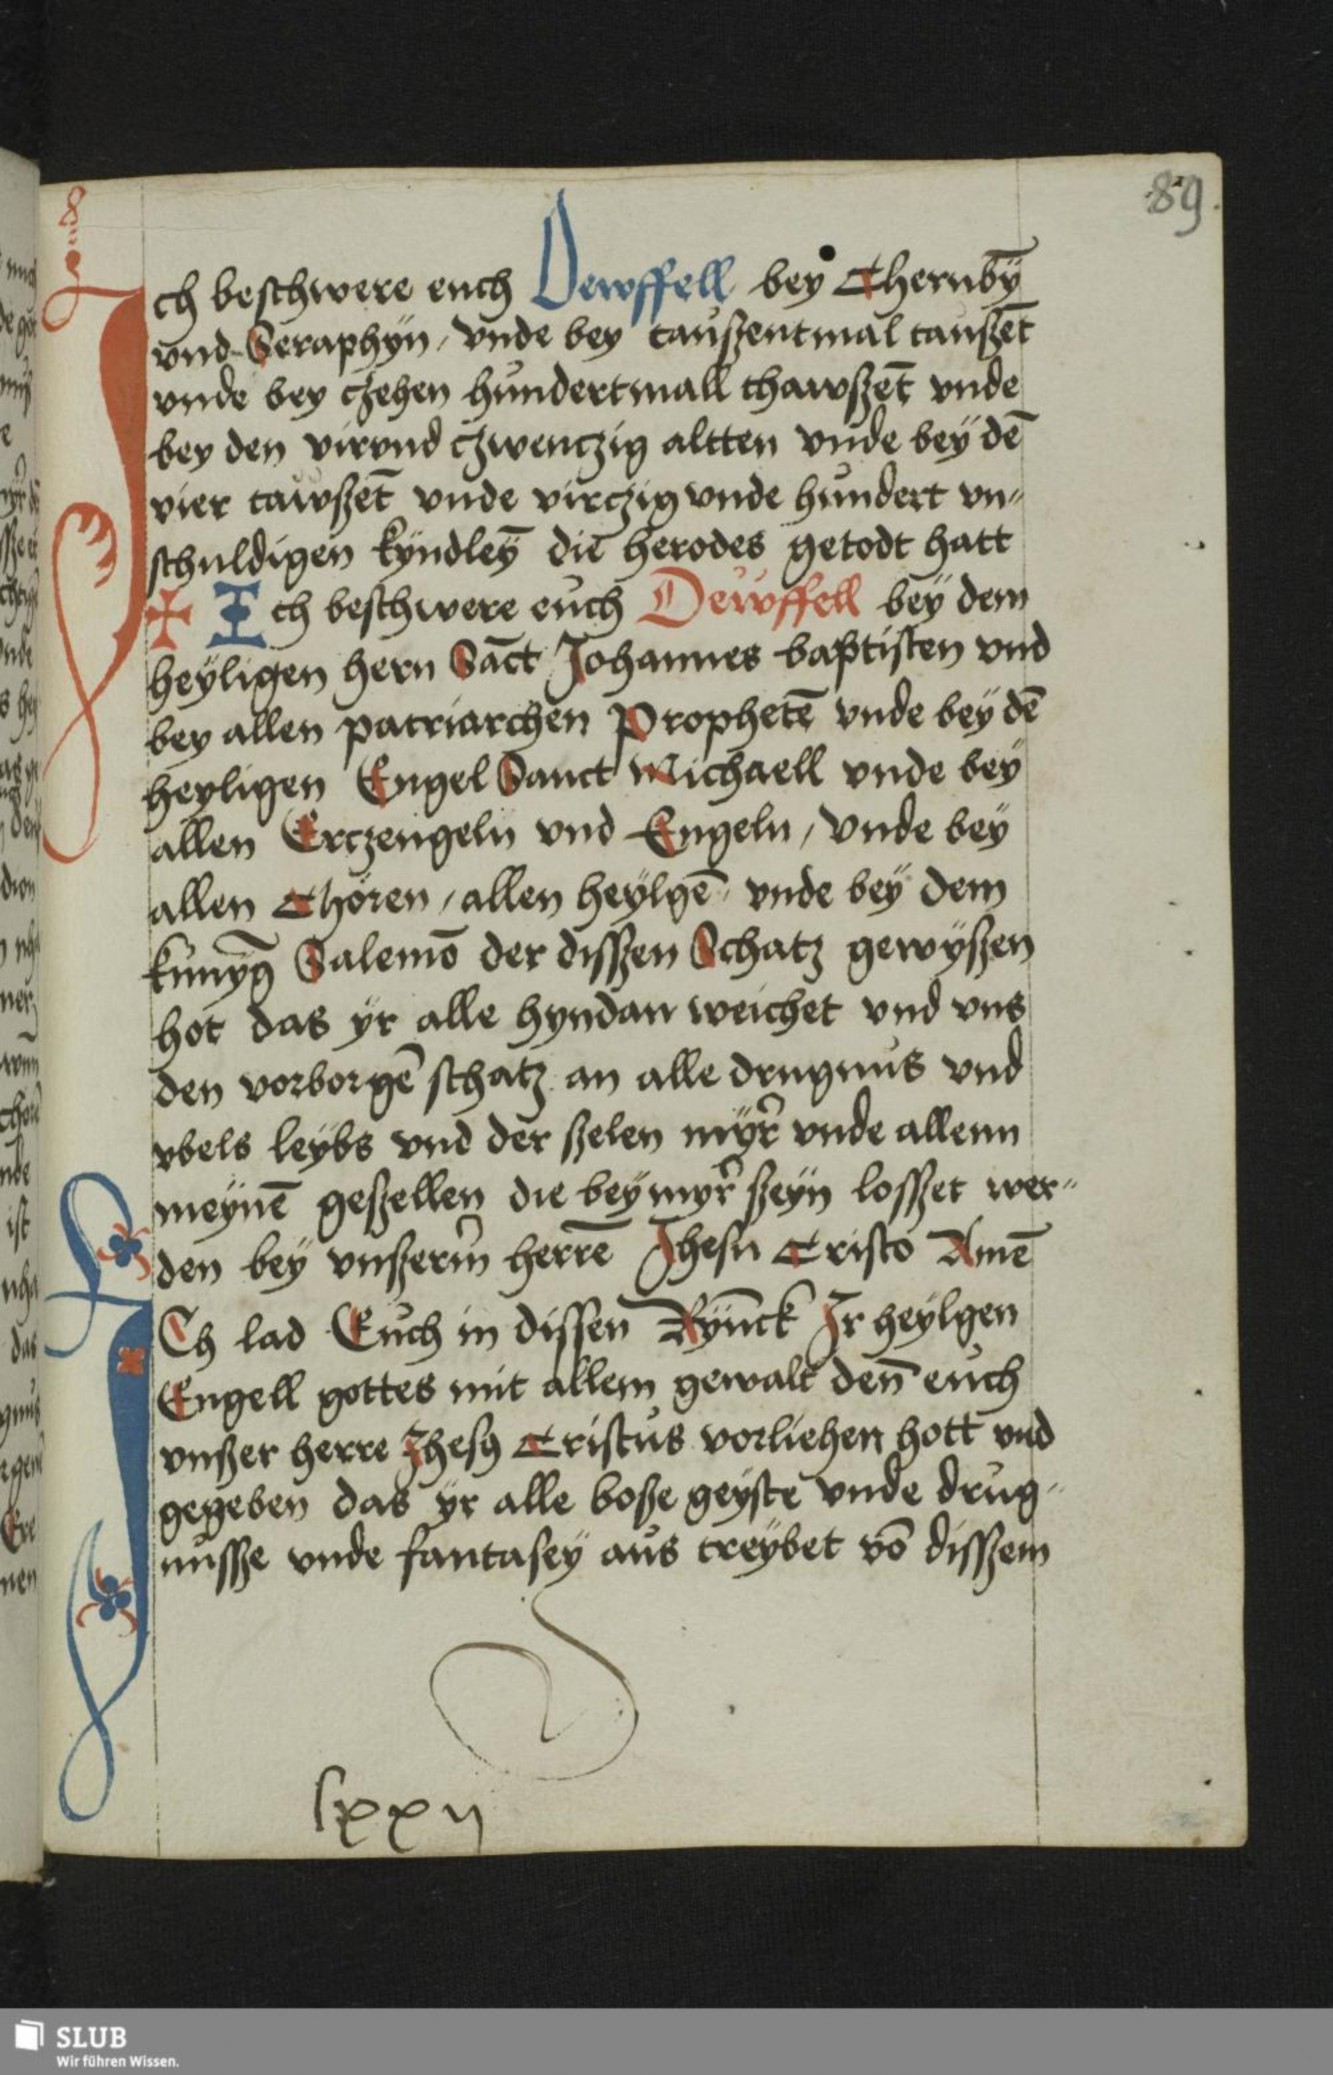 89.
Ich beschwere euch Dewffell bey Cherubȳ
vnd Seraphyn, vnde bey taußentmal taußēt
vnde bey czehen hundertmall thawßēt vnde
bey den virvnd czwenczig altten vnde bey dē
vier tawßēt vnde virczig vnde hundert vn„
schuldigen kyndleȳ die herodes getodt hatt
✠ Ich beschwere euch Dewffell bey dem
heyligen hern Sāct Johannes baptisten vnd
bey allen patriarchen Prophetē vnde bey dē
heyligen Engel Sanct Michaell vnde bey
allen Erczengeln vnd Engeln, vnde bey
allen Chören, allen heylgē, vnde bey dem
kunyḡ Salemō der disszen Schatz gewyßen
hot das yr alle hyndan weichet vnd vns
den vorborgē schatz an alle drugnus vnd
vbels leybs vnd der ßelen myr̄ vnde allenn
meynē geßellen die bey myr̄ ßeyn losszet wer„
den bey vnßerm̄ herrē Jhesu Cristo Amē
ICh lad Euch in dissen Ryn̄ck Ir heylgen
Engell gottes mit allem gewalt den̄ euch
vnßer herre Jhesꝰ Cristus vorliehen hott vnd
gegeben das yr alle boße geyste vnde drug„
nusse vnde fantasey aus treybet vō disszem
lxxij
SLUB
Wir führen Wissen.